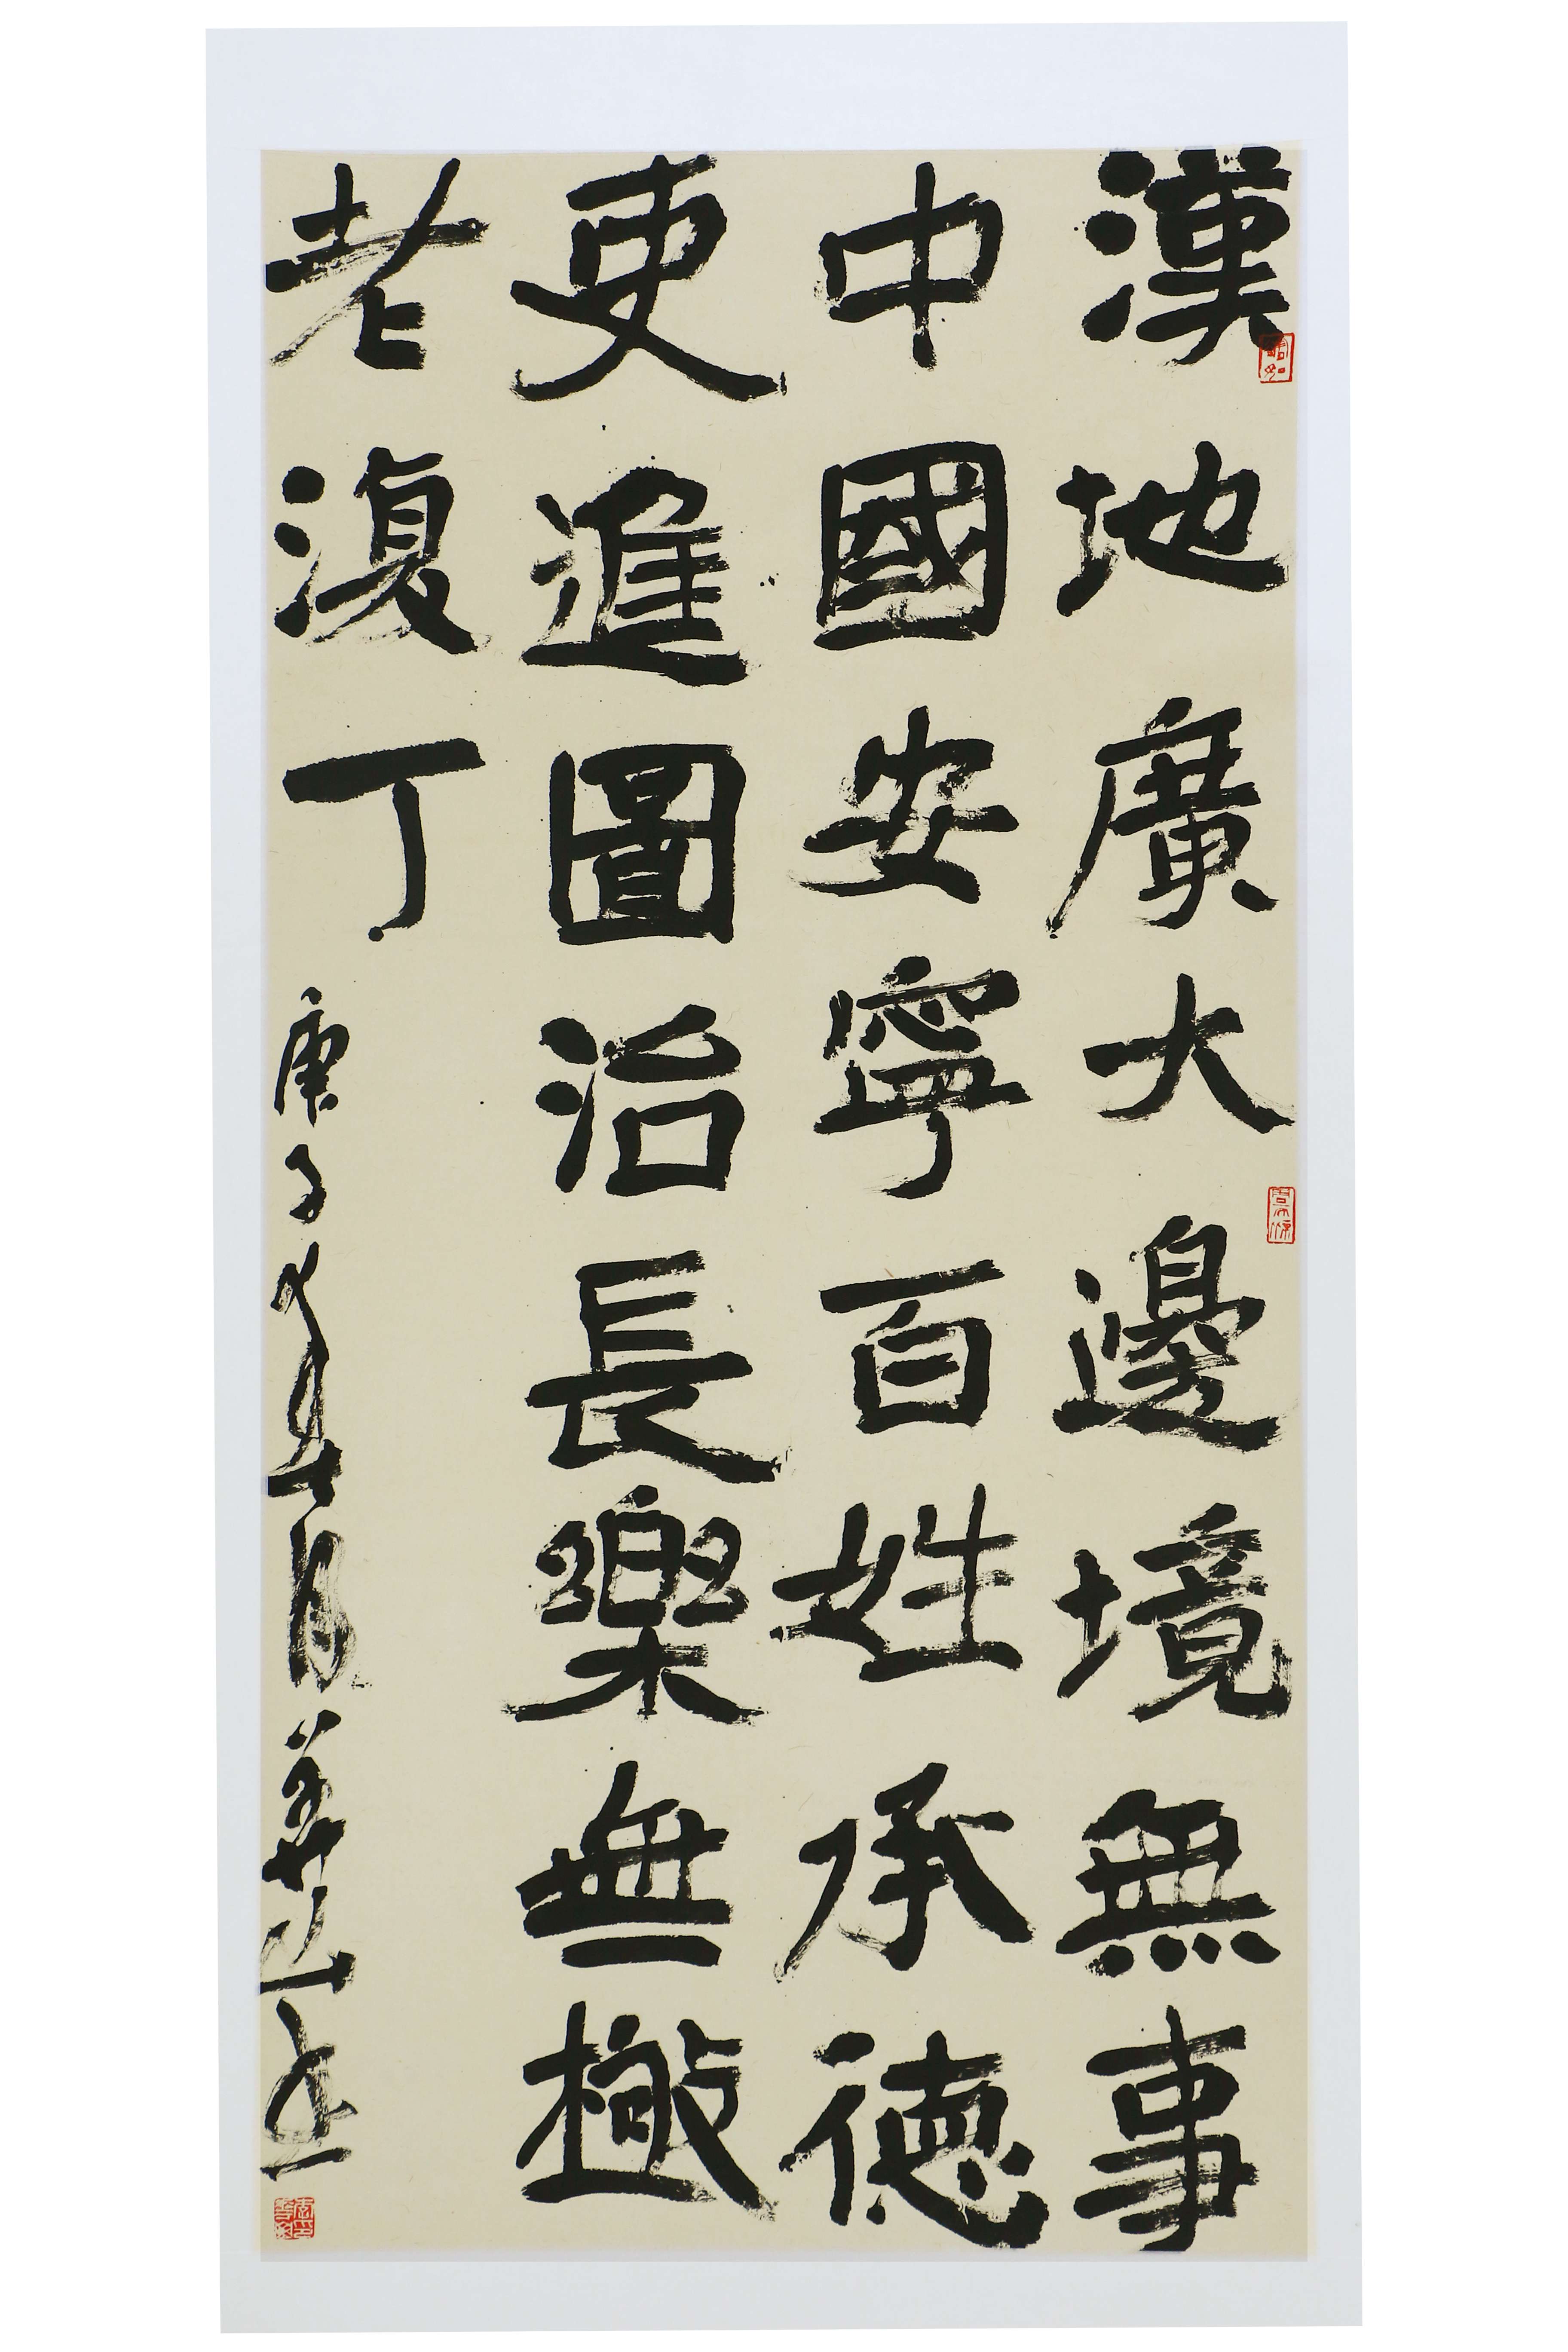 漢地廣大邊境無事
中國安寧百姓承德
吏進圖治長樂無極
老復丁 庚子